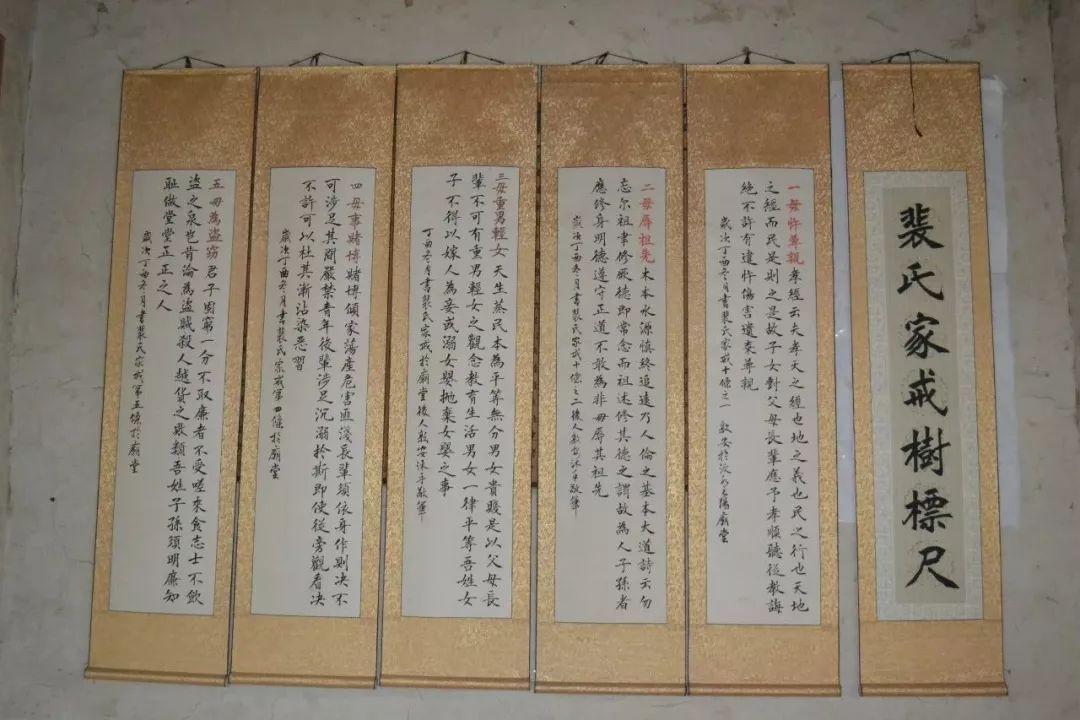 裴氏家戒樹標尺
一毋忤尊親孝經云夫孝天之經也地之義也民之行也天地
之經而民是則之是故子女對父母長輩應予孝順聽從教誨
絕不許有違忤傷害遺棄尊親
歲次丁酉冬月書裴氏家戒十條之一
二毋辱祖先木本水源慎終追遠乃人倫之基本大道詩云勿
忘尔祖聿修厥德即常念而祖述修其德之謂故為人子孫者
應修身明德遵守正道不敢為非毋辱其祖先
歲次丁酉冬月書裴氏家戒十條之二後人敬安沐手敬筆
三毋重男輕女天生蒸民本為平等無分男女貴賤是以父母長
輩不可有重男輕女之觀念教育生活男女一律平等吾姓女
子不得以嫁人為妾或溺女嬰拋棄女嬰之事
丁酉冬月書裴氏家戒於廟堂後人敬安沐手敬筆
四毋事賭博賭博傾家蕩產危害匪淺長輩須依身作則决不
可涉足其間嚴禁青年後輩涉足沉溺於斯即使從旁觀看决
不許可以杜其漸沾染惡習
歲次丁酉冬月書裴氏家戒第四條於廟堂
五毋為盜竊君子固窮一分不取廉者不受嗟來食志士不飲
盜之泉豈肯淪為盜賊殺人越貨之衆類吾姓子孫須明廉知
耻做堂堂正正之人
歲次丁酉冬月書裴氏家戒第五條於廟堂